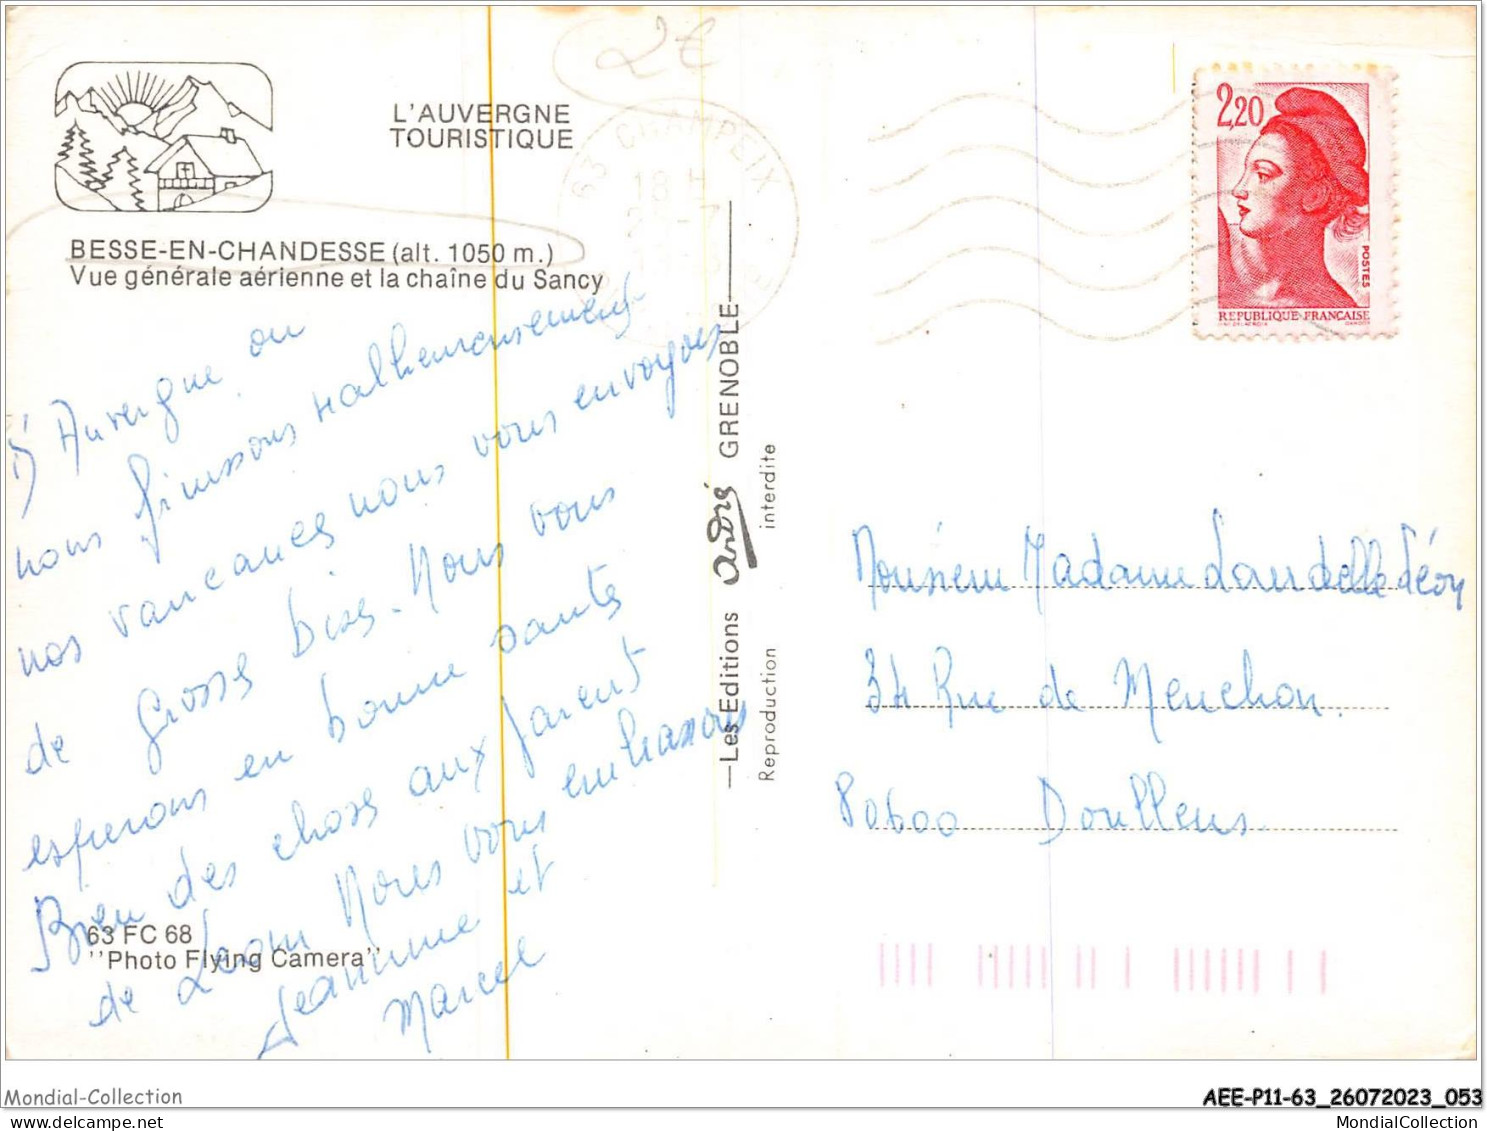 2€
L'AUVERGNE
TOURISTIQUE
63 CHAMPEIX
18 H
2,20
POSTES
REPUBLIQUE FRANCAISE
BESSE-EN-CHANDESSE (alt. 1050 m.)
Vue générale aérienne et la chaîne du Sancy
D'Auvergne ou
nous finissons malheureusement
nos vancances nous vous envoyons
de grosse bises. Nous vous
esperons en bonne santé
Bien des chose aux parent
de Leom Nous vous embrassons
Jeannine et
Marcel
63 FC 68
''Photo Flying Camera''
Les Editions André GRENOBLE
Reproduction interdite
Monsieur Madame Landelle Léon
34 Rue de Menchon.
80600 Doullens
Mondial-Collection
AEE-P11-63_26072023_053
MondialCollection